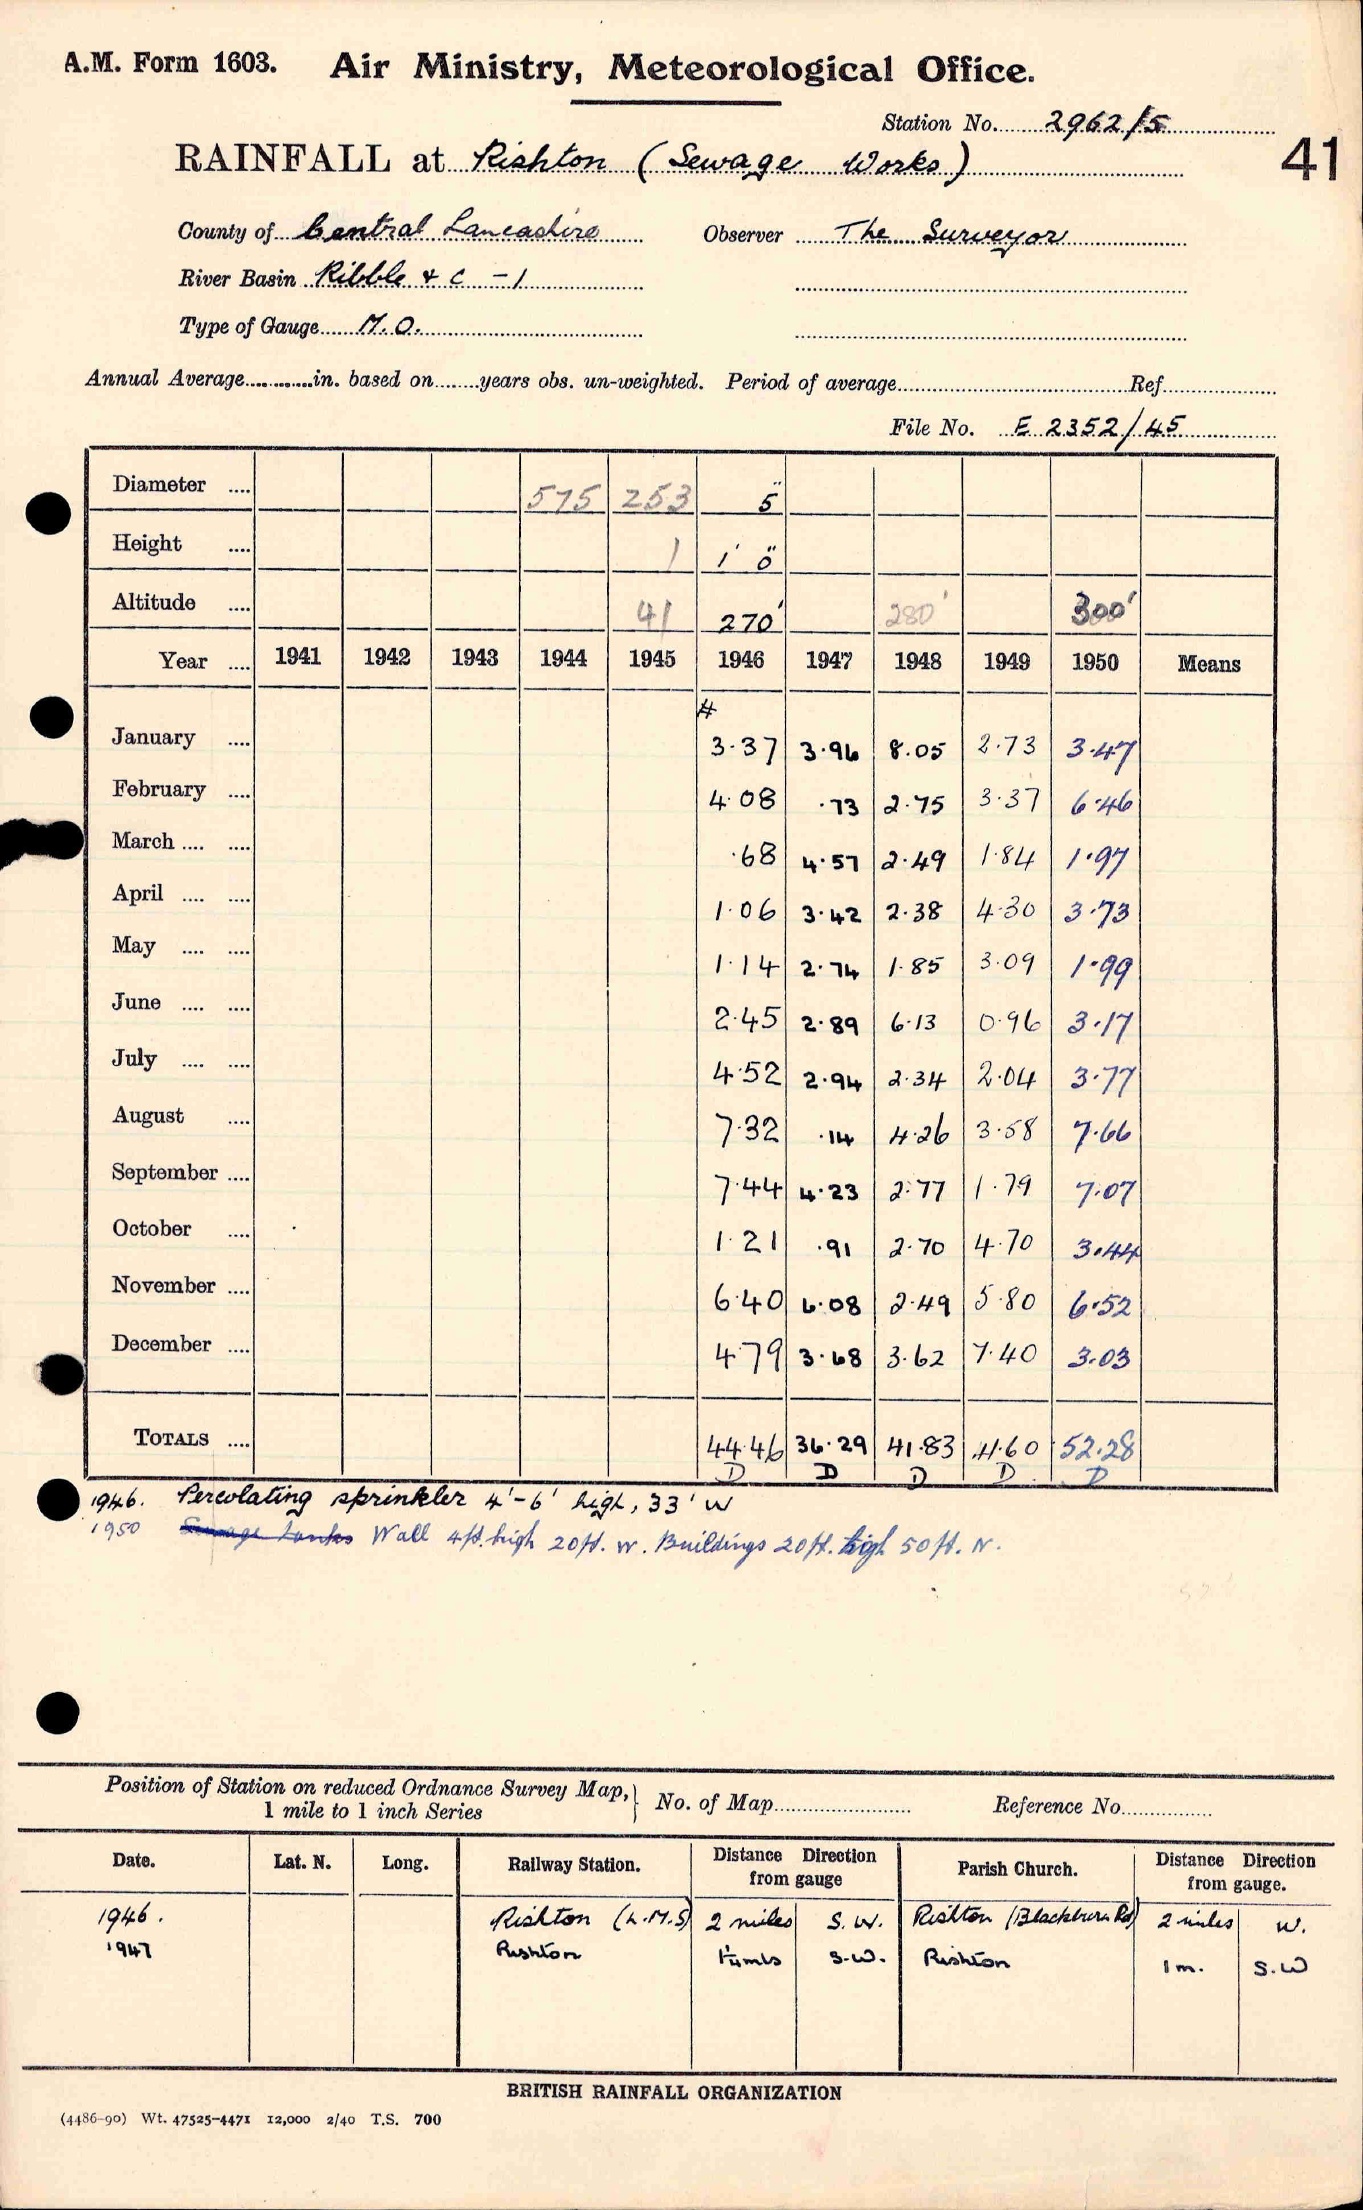 A.M. Form 1603. Air Ministry, Meteorological Office.
Station No. 2962/5
41
RAINFALL at Rishton (Sewage Works)
County of Central Lancashire Observer The Surveyor
River Basin Ribble & c - 1
Type of Gauge M.O.
Annual Average in. based on years obs. un-weighted. Period of average Ref.
File No. E 2352/45
Diameter 575 253 5"
Height 1 1' 0"
Altitude 41 270' 280' 300'
Year 1941 1942 1943 1944 1945 1946 1947 1948 1949 1950 Means
#
January 3.37 3.96 8.05 2.73 3.47
February 4.08 .73 2.75 3.37 6.46
March .68 4.57 2.49 1.84 1.97
April 1.06 3.42 2.38 4.30 3.73
May 1.14 2.74 1.85 3.09 1.99
June 2.45 2.89 6.13 0.96 3.17
July 4.52 2.94 2.34 2.04 3.77
August 7.32 .14 4.26 3.58 7.66
September 7.44 4.23 2.77 1.79 7.07
October 1.21 .91 2.70 4.70 3.44
November 6.40 6.08 2.49 5.80 6.52
December 4.79 3.68 3.62 7.40 3.03
TOTALS 44.46 36.29 41.83 41.60 52.28
D D D D D
1946. Percolating sprinkler 4'-6' high, 33' W
1950 Sewage tanks Wall 4ft. high 20ft. W. Buildings 20ft. high 50ft. N.
Position of Station on reduced Ordnance Survey Map, 1 mile to 1 inch Series } No. of Map Reference No.
Date. Lat. N. Long. Railway Station. Distance Direction from gauge Parish Church. Distance Direction from gauge.
1946. Rishton (L.M.S) 2 miles S.W. Rishton (Blackburn Rd) 2 miles W.
1947 Rishton 1¼ mls S.W. Rishton 1 m. S.W
BRITISH RAINFALL ORGANIZATION
(4486-90) Wt. 47525-4471 12,000 2/40 T.S. 700